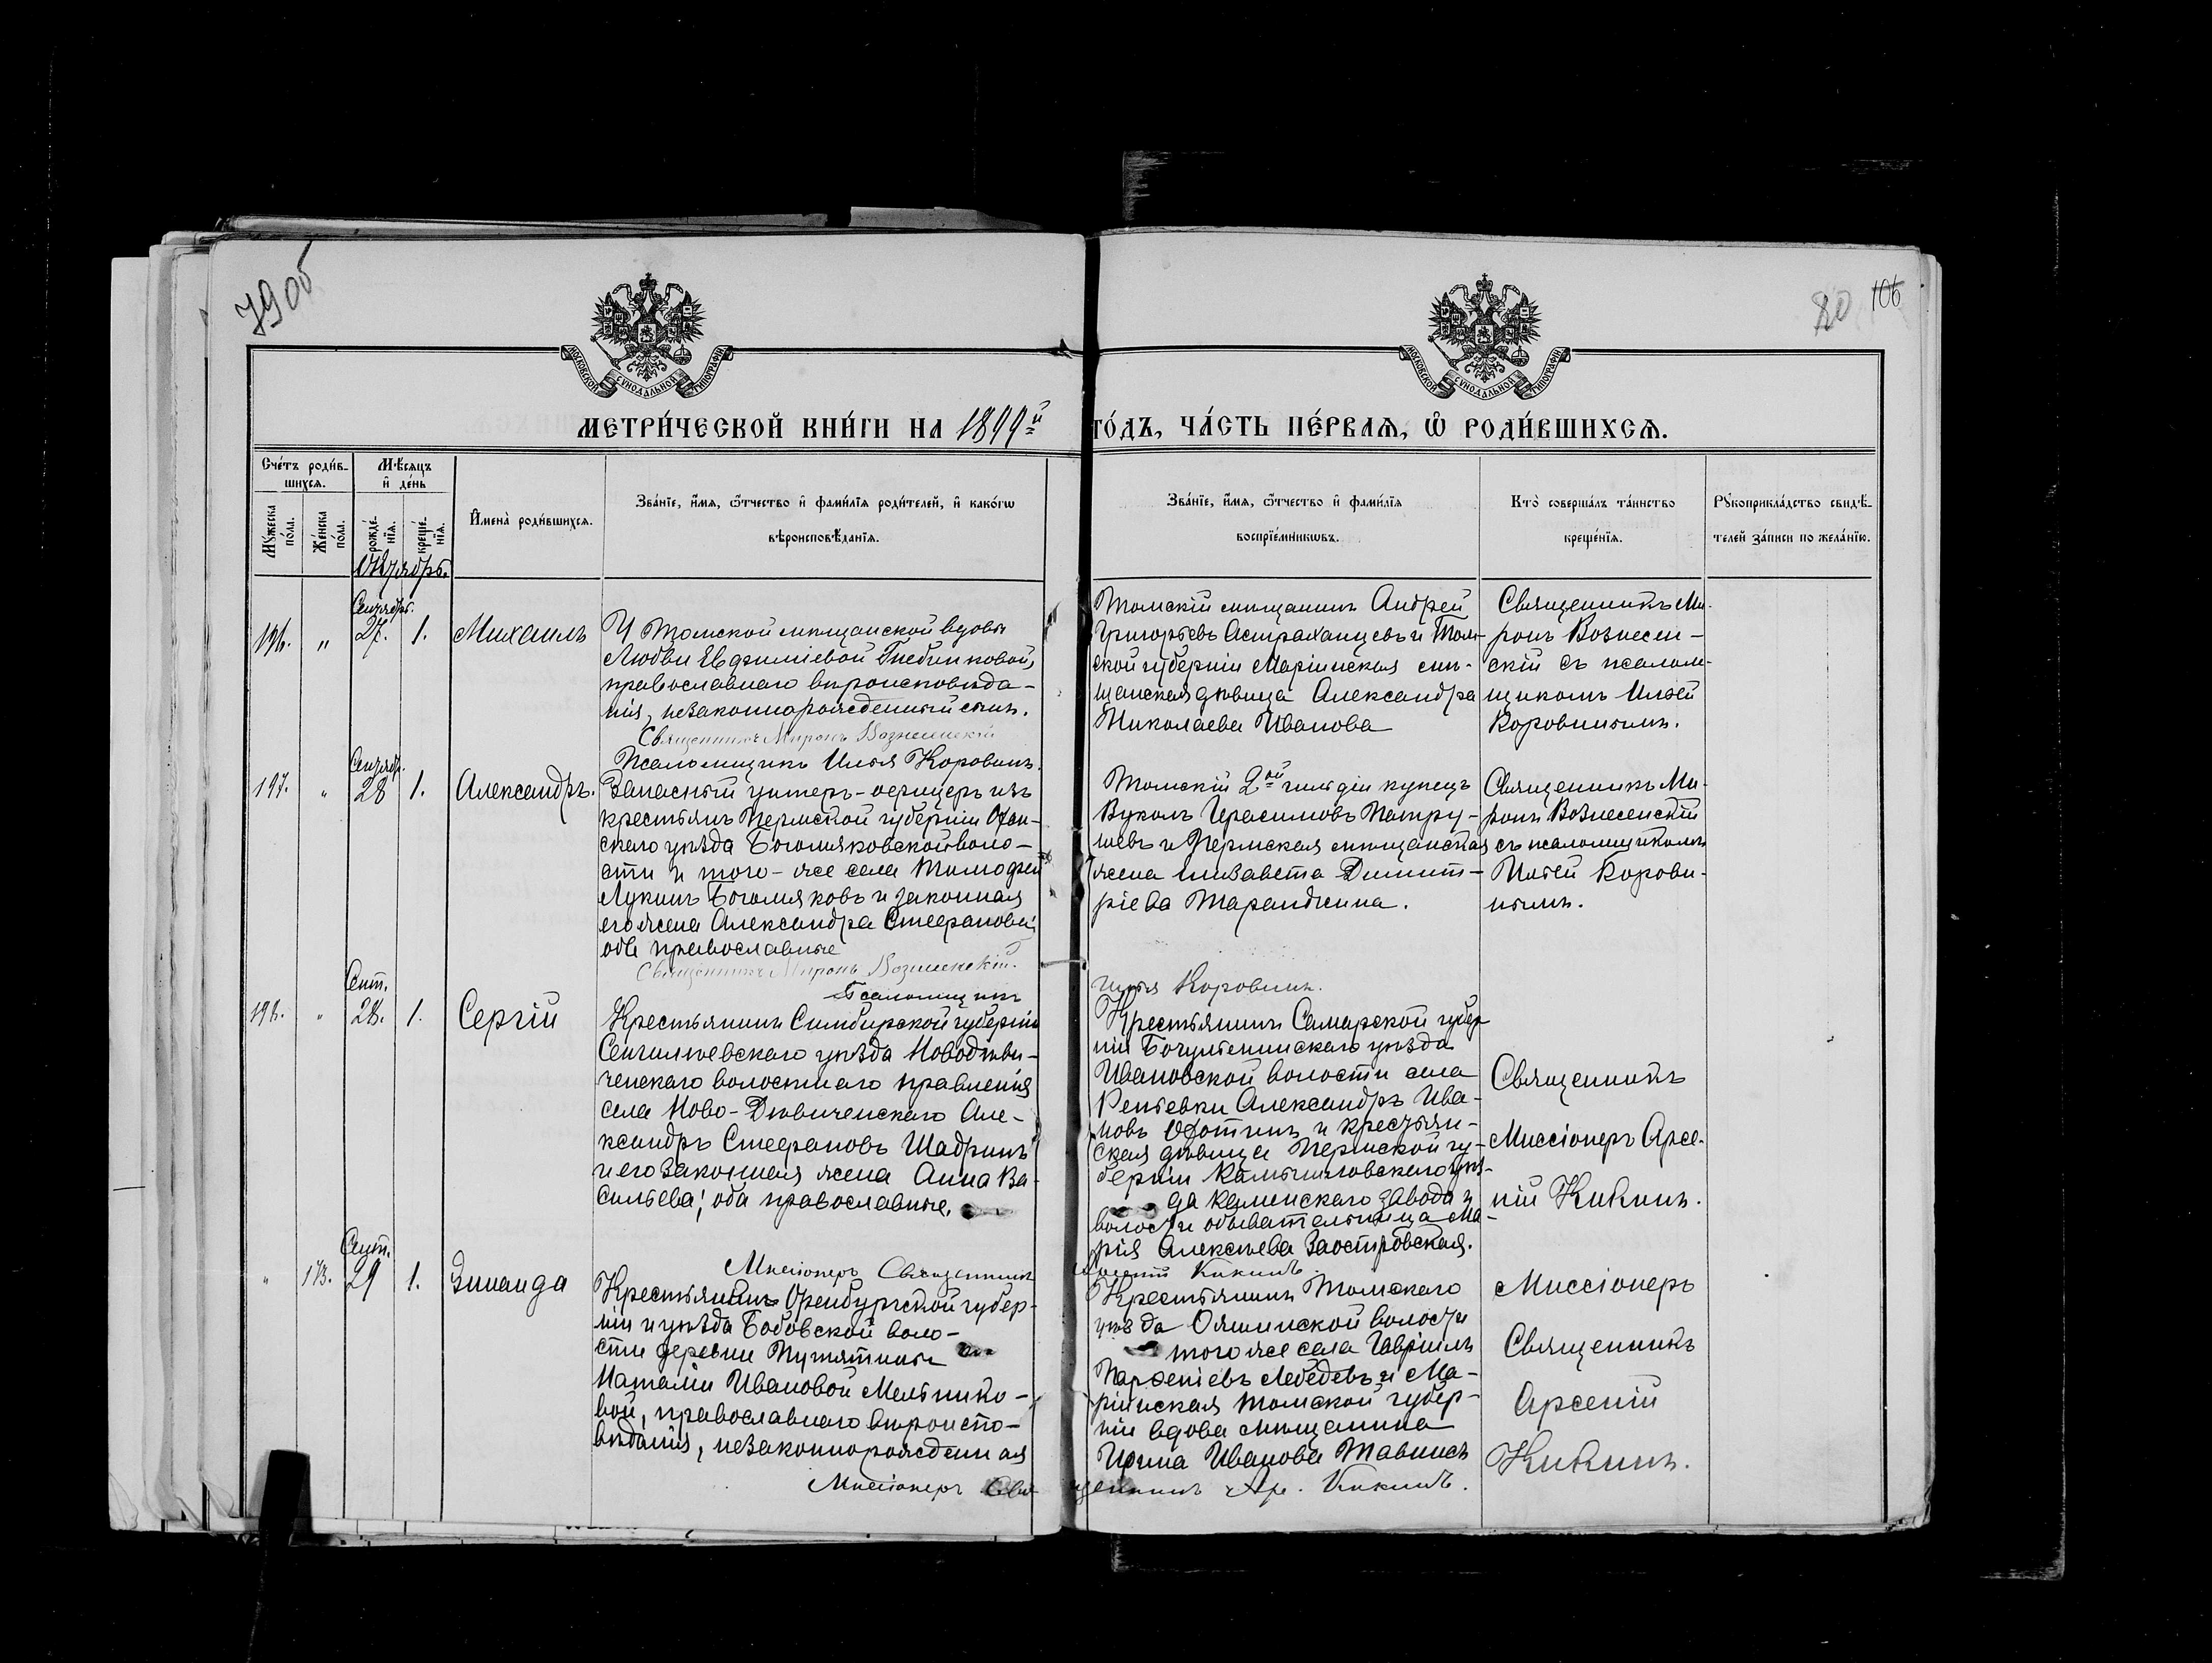 79 об
80 106
МОСКОВСКОЙ СѴНОДАЛЬНОЙ ТИПОГРАФІИ
МОСКОВСКОЙ СѴНОДАЛЬНОЙ ТИПОГРАФІИ
МЕТРИ́ЧЕСКОЙ КНИ́ГИ НА 1899й ГО́ДЪ, ЧА́СТЬ ПЕ́РВАѦ, Ѡ РОДИ́ВШИХСѦ.
Сче́тъ роди́в-
шихсѧ.
Мѣ́сѧцъ
и҆ де́нь
Мꙋ́жеска по́ла.
Же́нска по́ла.
рожде́-
нїѧ.
креще́-
нїѧ.
И҆мена̀ роди́вшихсѧ.
Зва́нїе, и҆́мѧ, ѻ҆́тчество и҆ фами́лїѧ роди́телей, и҆ како́гѡ
вѣроисповѣ́данїѧ.
Зва́нїе, и҆́мѧ, ѻ҆́тчество и҆ фами́лїѧ
воспрїе́мникѡвъ.
Кто̀ соверша́лъ та́инство
креще́нїѧ.
Рꙋкоприкла́дство свидѣ́-
телей за́писи по жела́нїю.
Октябрь.
Сентябрь.
196. " 27. 1. Михаилъ
У Томской мѣщанской вдовы
Любви Евфиміевой
православнаго вѣроисповѣда-
нія, незаконнорожденный сынъ.
Священникъ Миронъ Вознесенскій
Псаломщикъ Илья Коровинъ.
Томскій мѣщанинъ Андрей
Григорьевъ Астраханцевъ и Том-
ской губерніи Маріинская мѣ-
щанская дѣвица Александра
Николаева Иванова
Священникъ Ми-
ронъ Вознесен-
скій съ псалом-
щикомъ Ильей
Коровинымъ.
Сентябр.
197. " 28 1. Александръ.
Запасный унтеръ-офицеръ изъ
крестьянъ Пермской губерніи Осин-
скаго уѣзда Богомяковской воло-
сти и того-же села Тимофей
Лукинъ Богомяковъ и законная
его жена Александра Стефанова;
оба православные
Священникъ Миронъ Вознесенскій.
Псаломщикъ Илья Коровинъ.
Томскій 2ой гильдіи купецъ
Вуколъ Герасимовъ Патру-
шевъ и Пермская мѣщанская
жена Елизавета Димит-
ріева
Священникъ Ми-
ронъ Вознесенскій
съ псаломщикомъ
Ильей Корови-
нымъ.
Сент.
198. " 28. 1. Сергій
Крестьянинъ Симбирской губерніи
Сенгилѣевскаго уѣзда Новодѣви-
ченскаго волостнаго правленія
села Ново-Дѣвиченскаго Але-
ксандръ Стефановъ Шадринъ
и его законная жена Анна Ва-
сильева; оба православные.
Миссіонеръ Священникъ Арсеній Кикинъ.
Крестьянинъ Самарской губер
ніи Богульминскаго уѣзда
Ивановской волости села
Репьевки Александръ Ива-
новъ и крестьян-
ская дѣвица Пермской гу-
берніи Камышловскаго уѣз-
да Каменскаго завода и
волости обывательница Ма-
рія Алексѣева Заостровская.
Священникъ
Миссіонеръ Арсе-
ній Кикинъ.
Сент.
" 173. 29 1. Зинаида
Крестьянинъ Оренбургской губер-
ніи и уѣзда Бобовской воло-
сти деревни Путятины
Наталіи Ивановой Мельнико-
вой, православнаго вѣроиспо-
вѣданія, незаконнорожденная
Миссіонеръ Священникъ Ар. Кикинъ.
Крестьянинъ Томскаго
уѣзда Ояшинской волости
того же села Гавріилъ
Парфеніевъ Лебедевъ и Ма-
ріинская Томской губер-
ніи вдова мѣщанина
Ирина Иванова
Миссіонеръ
Священникъ
Арсеній
Кикинъ.